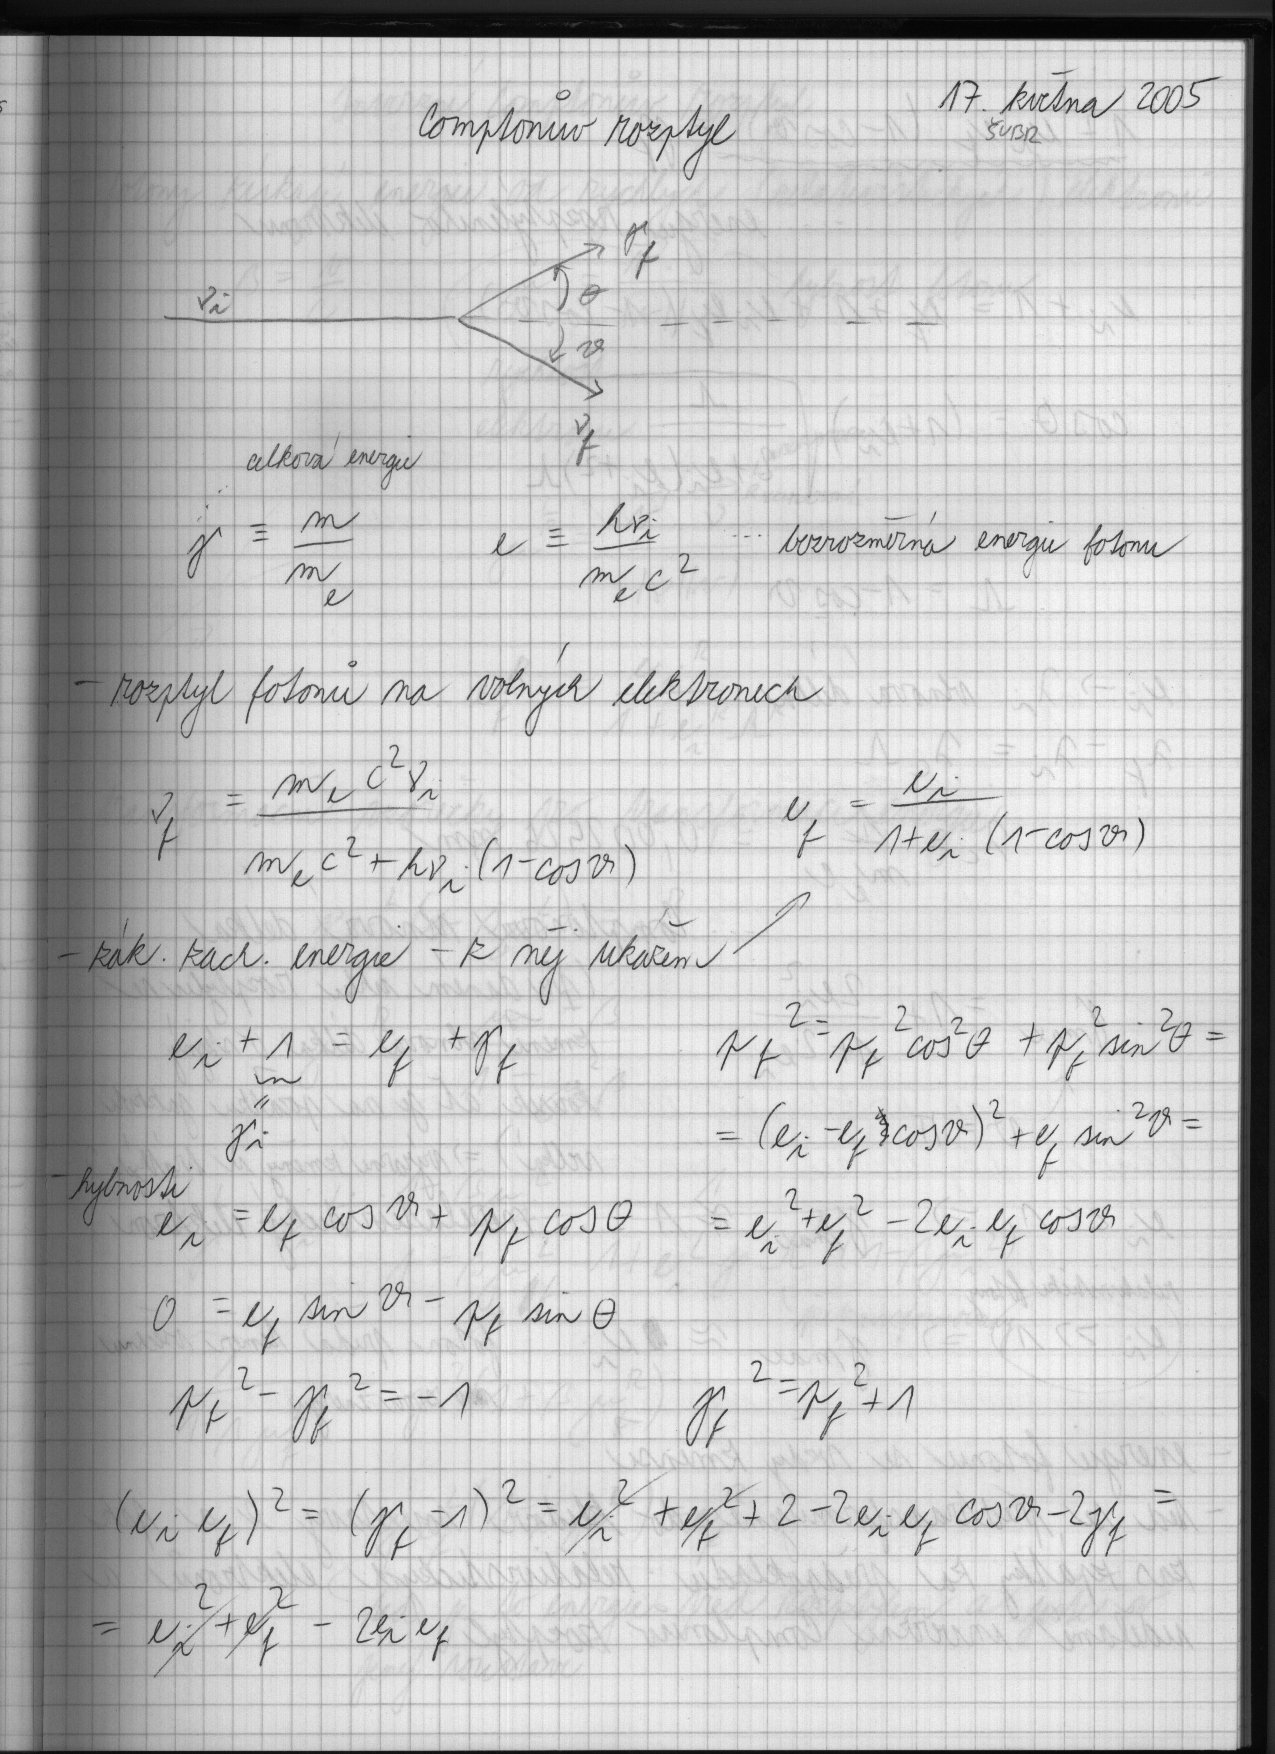 17. května 2005
ŠUBR
Comptonův rozptyl
γ_f
ν_i
θ
ϑ
ν_f
celková energie
γ ≡ m/m_e    e ≡ hν_i/(m_e c²) ... bezrozměrná energie fotonu
- rozptyl fotonů na volných elektronech
ν_f = m_e c² ν_i / (m_e c² + hν_i (1-cosϑ))    e_f = e_i / (1+e_i (1-cosϑ))
- zák. zach. energie - z něj ukážem
e_i + 1 = e_f + γ_f    p_f² = p_f² cos²θ + p_f² sin²θ =
γ_i    = (e_i - e_f cosϑ)² + e_f sin²ϑ =
- hybnosti
e_i = e_f cosϑ + p_f cosθ    = e_i² + e_f² - 2e_i e_f cosϑ
0 = e_f sinϑ - p_f sinθ
p_f² - γ_f² = -1    γ_f² = p_f² + 1
(e_i e_f)² = (γ_f - 1)² = e_i² + e_f² + 2 - 2e_i e_f cosϑ - 2γ_f =
= e_i² + e_f² - 2e_i e_f